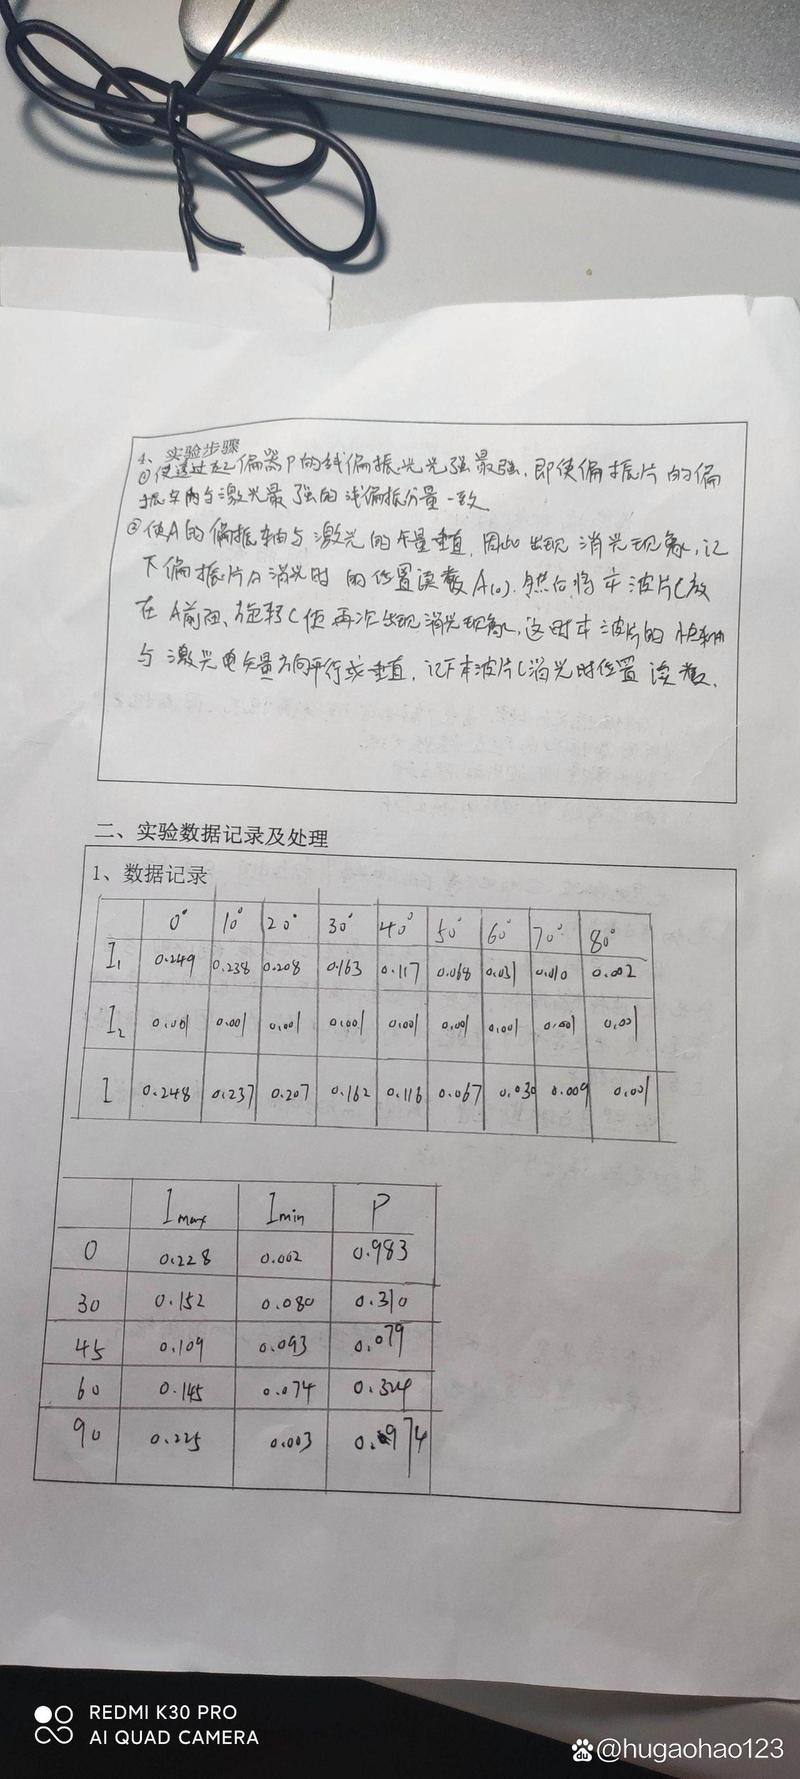 4、实验步骤
①使透过起偏器P的线偏振光光强最强，即使偏振片的偏
振方向与激光最强的线偏振分量一致
②使A的偏振轴与激光的矢量垂直，因此出现消光现象，记
下偏振片A消光时的位置读数A(0)。然后将波片C放
在A前面，旋转C使再次出现消光现象，这时波片的快轴
与激光电矢量方向平行或垂直，记下波片C消光时位置读数。
二、实验数据记录及处理
1、数据记录
0° 10° 20° 30° 40° 50° 60° 70° 80°
I₁ 0.249 0.238 0.208 0.163 0.117 0.068 0.031 0.010 0.002
I₂ 0.001 0.001 0.001 0.001 0.001 0.001 0.001 0.001 0.001
I 0.248 0.237 0.207 0.162 0.116 0.067 0.030 0.009 0.001
Imax Imin P
0 0.228 0.002 0.983
30 0.152 0.080 0.310
45 0.109 0.093 0.079
60 0.145 0.074 0.324
90 0.225 0.003 0.974
REDMI K30 PRO
AI QUAD CAMERA
du @hugaohao123